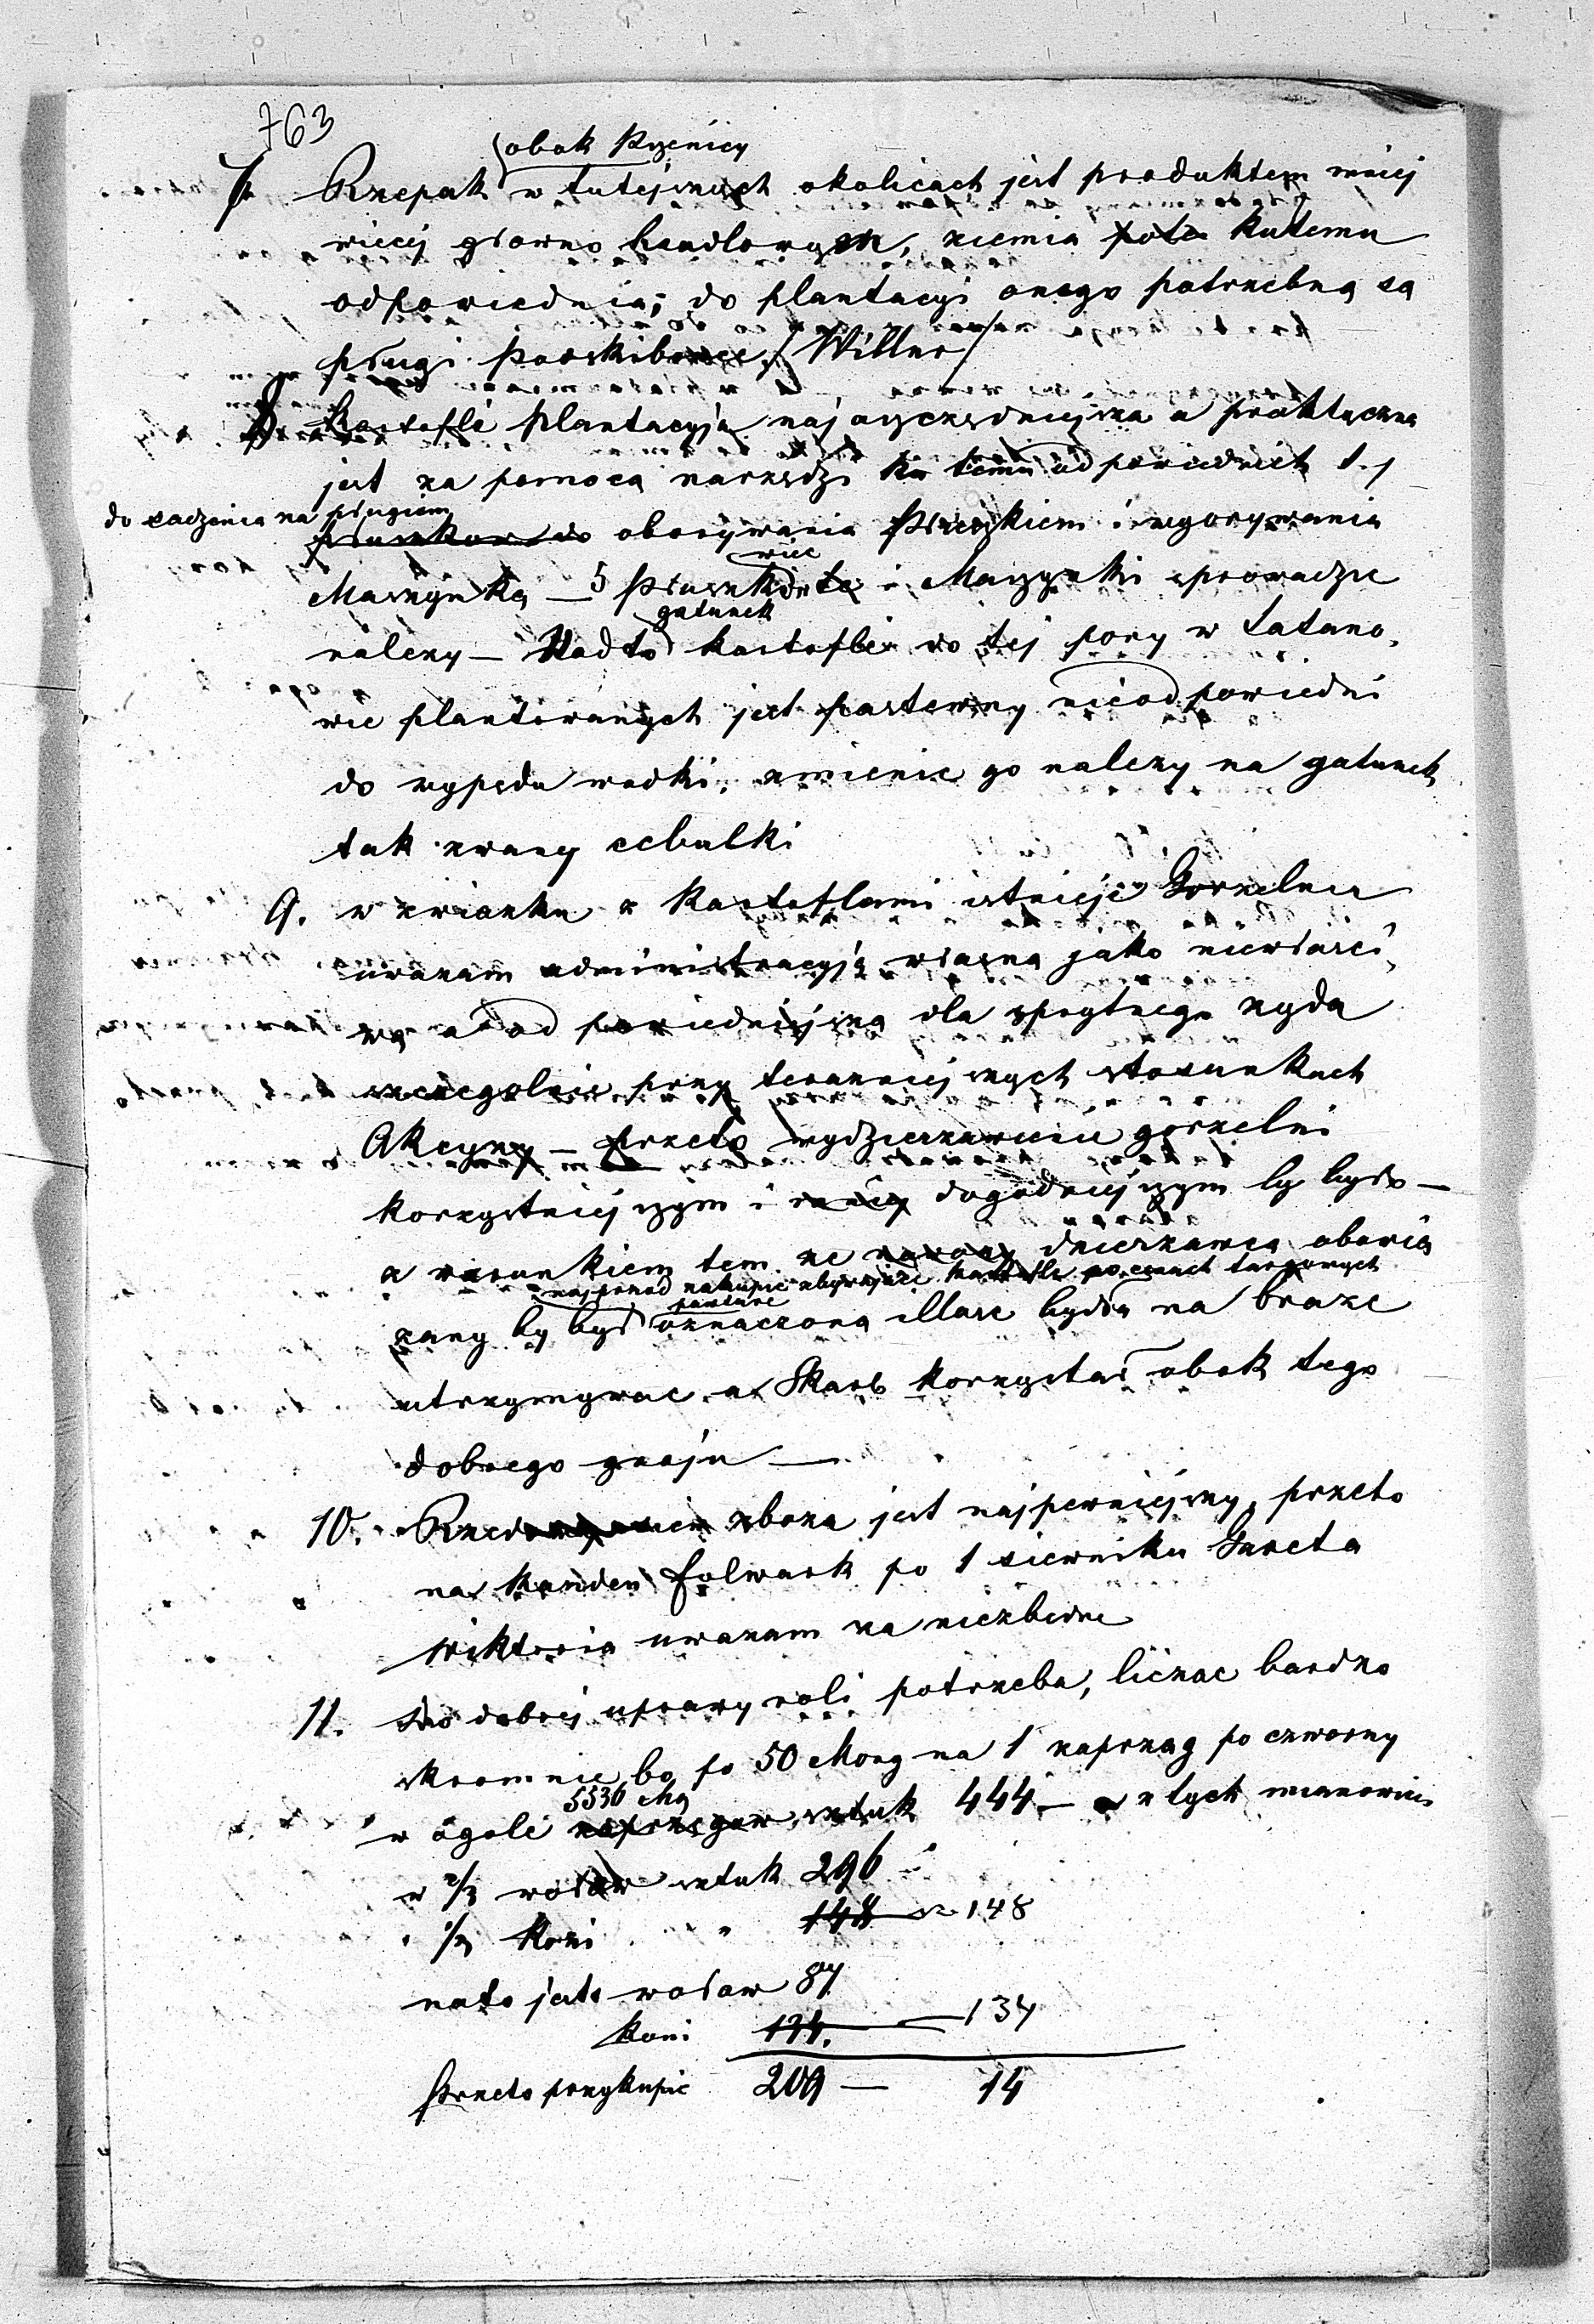 763
obok Pszenicy
7. Rzepak w tutejszych okolicach jest produktem mniej
wiecej głowno handlowym, ziemia kutemu
odpowiednia; do plantacyi onego potrzebną są
pługi /Willno/
8 Kartofli plantacyja naj oszczędniejsza a praktyczna
jest za pomocą narzędzi ku temu odpowiednich t. j
do sadzenia na pługiem
oborywania Płuszkiem i wyorywania
wiec
Maszynką — 5 i Maszynki sprowadzic
gatunek
nalezy — Nadto kartofli do tej pory w Tatano,
wie plantowanych jest pastewny nieodpowiedni
do wypędu wodki, zmienic go nalezy na gatunek
tak zwany cebulki
9. w zwiazku z Kartoflami istnieje Gorzelnia
uwazam administracyją własną jako niewłasci,
wą a odpowiedniejszą dla sprytnego zyda
szczegolnie przy terazniejszych stosunkach
Akcyzy — przeto wydzierzawienie gorzelni
korzystniejszym i dogodniejszym by było —
z warunkiem tem ze dzierzawca obowią
najprzod nakupic kartofli po cenach targowych
zany by był oznaczona illosc bydła na braze
utrzymywac a Skarb korzystał obok tego
dobrego gnoju —
10. zboza jest najpewniejszy, przeto
na kazden folwark po 1 siewniku Gareta
Wiktoria uwazam za niezbedne
11. do dobrej uprawy roli potrzeba, liczac bardzo
skromnie bo po 50 Morg na 1 zaprzag po czworny
5536 Mg
w ogole zaprzegow sztuk 444 — z tych mianowicie
w 2/3 wołow sztuk 296
" 1/3 Koni " 148 — 148
nato jest wołow 87
Koni 134. — 134
Przeto przykupic 209 — 14